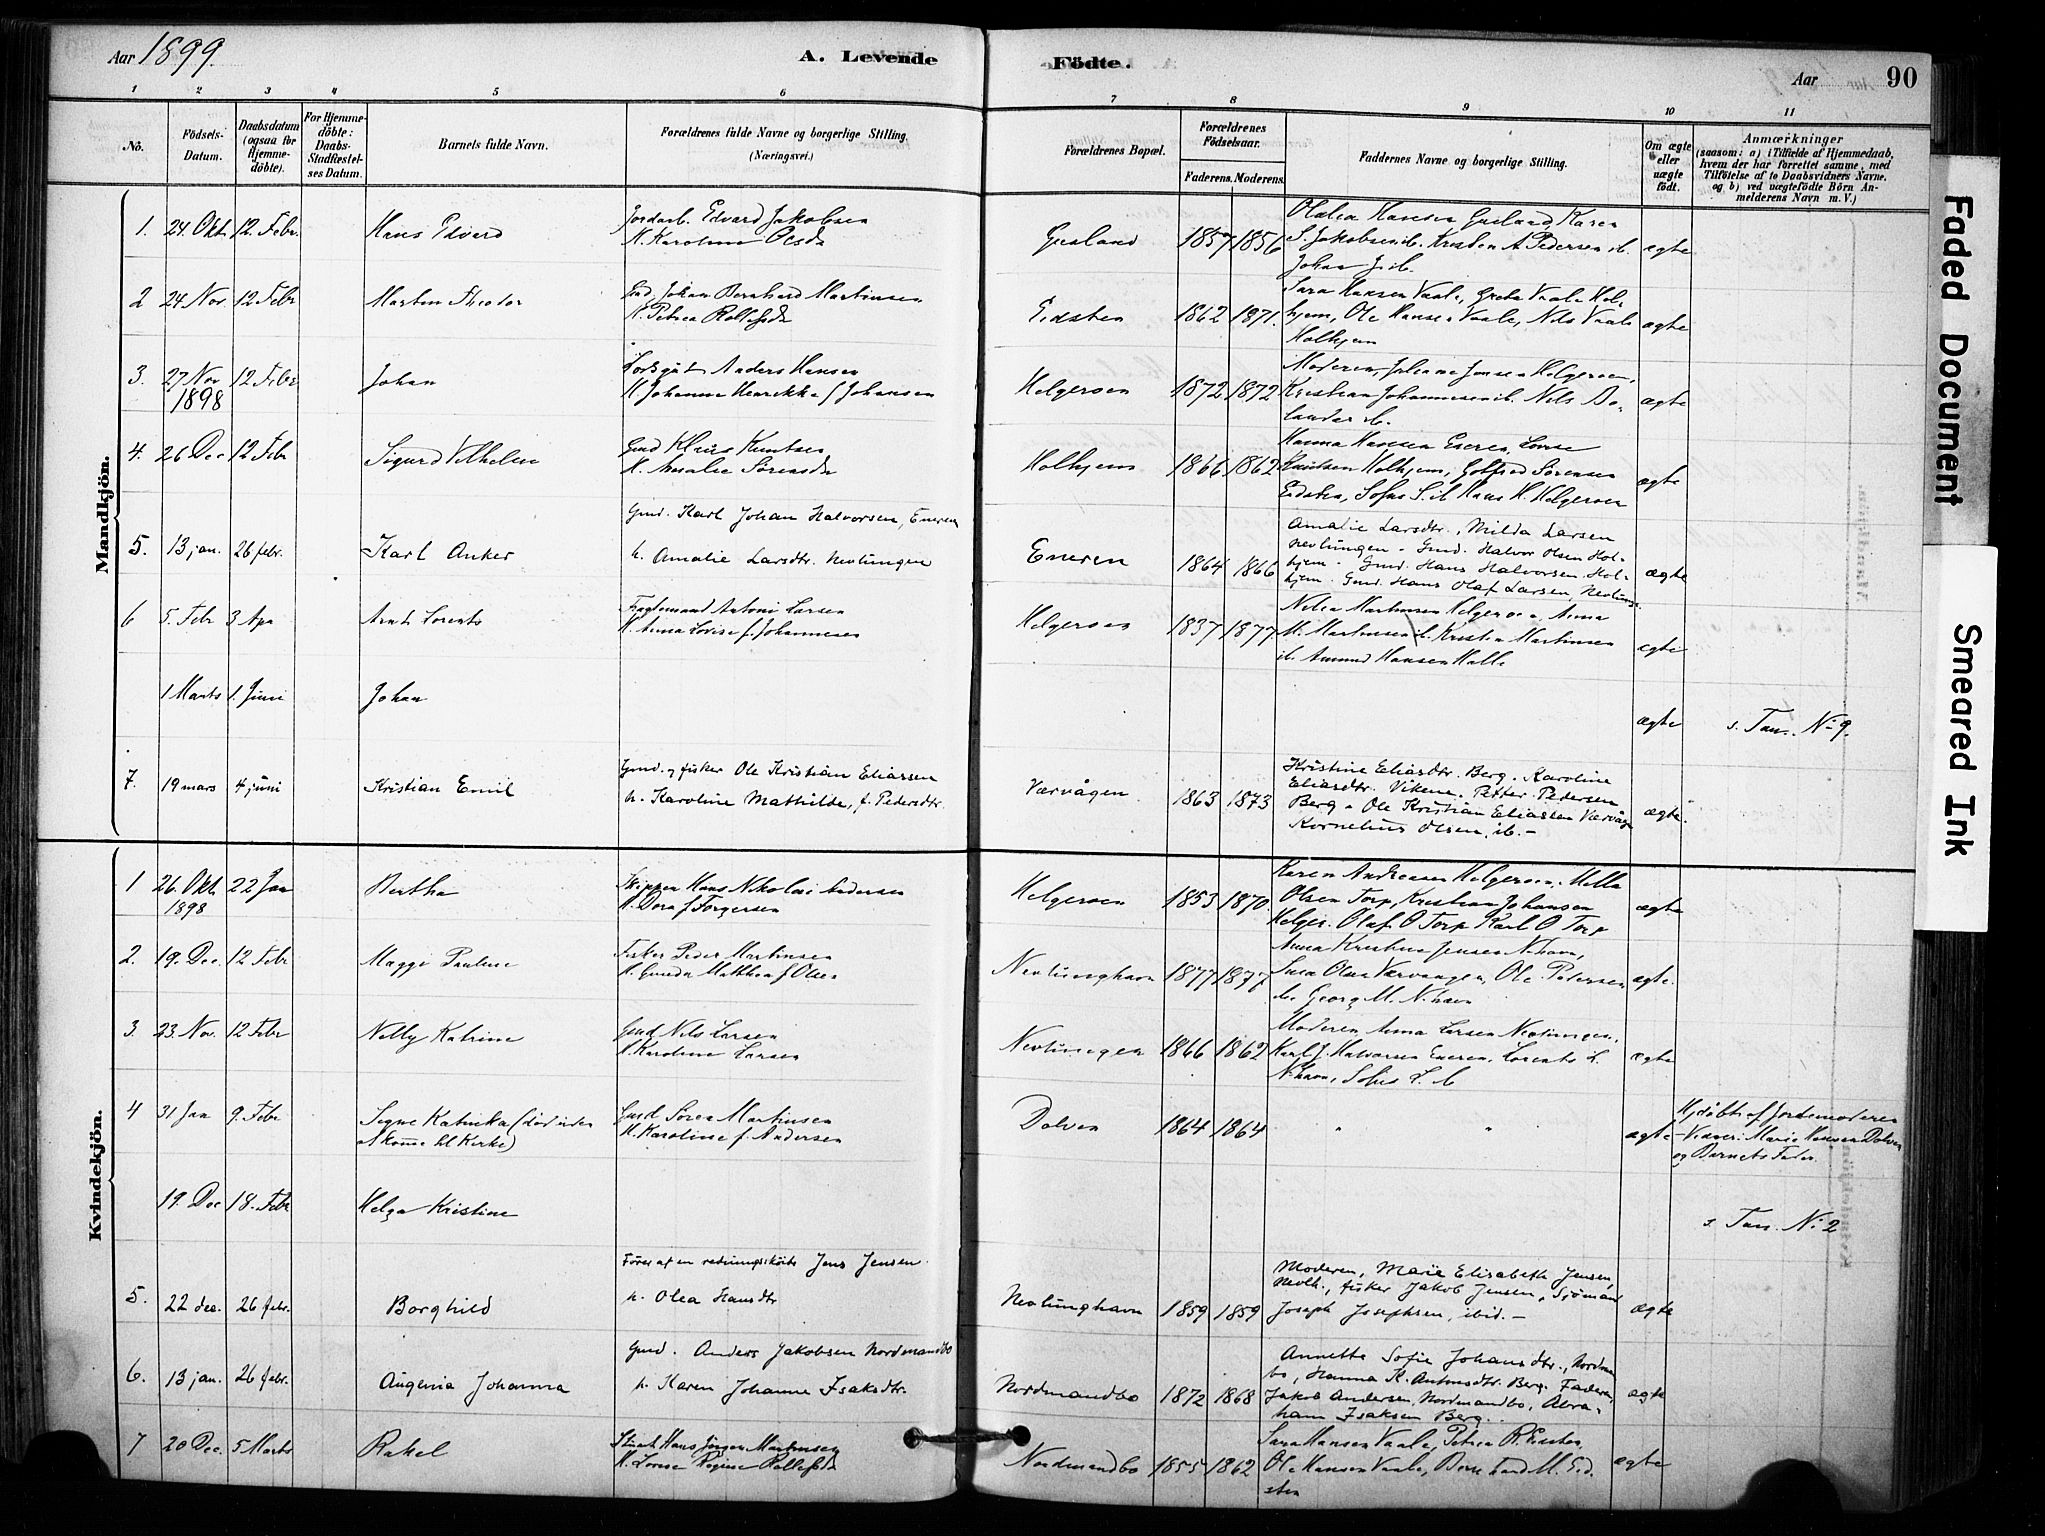 Aar 1899.
A. Levende Födte.
Aar 90
1 2 3 4 5 6 7 8 9 10 11
No.
Födsels-Datum.
Daabsdatum (ogsaa for Hjemmedöbte).
For Hjemmedöbte: Daabs-Stadfæstelses Datum.
Barnets fulde Navn.
Forældrenes fulde Navne og borgerlige Stilling. (Næringsvei.)
Forældrenes Bopæl.
Forældrenes Födselsaar.
Faderens. Moderens.
Faddernes Navne og borgerlige Stilling.
Om ægte eller uægte født.
Anmærkninger
(saasom: a) i Tilfælde af Hjemmedaab,
hvem der har forrettet samme, med
Tilföielse af to Daabsvidners Navne,
og b) ved uægtefödte Börn Anmelderens Navn m. V.)
Mandkjön.
1. 24. Okt 12. Febr. Hans Edvard
Jordarb. Edvard Jakobsen
H. Karoline Olsdr
1857 1856
Olalea Hansen Karen
S. Jakobsen ib. Kristen A Pedersen ib.
Johan J. ib.
ægte
2 24 Nov 12 Febr Martin Theodor
Gmd. Johan Bernhard Martinsen
H. Petrea Rollefsdr
Eidsten 1862 1871.
Sara Hansen Vaale, Grete Vaale Hol-
hjem, Ole Hansen Vaale, Nils Vaale
Holhjem
ægte
3. 27 Nov 1898 12 Febr Johan
Anders Hansen
H. Johanne Henrikke f Johansen
Helgeroen 1872 1872
Moderen, Helgeroen,
Kristian Johannesen ib. Nils Bo-
lander ib.
ægte
4. 26 Dec 12 Febr Sigurd Vilhelm
Gmd Klaus Knutsen
H. Amalie Sörensdr
Holhjem 1866 1862
Hanna Hansen Eneren, Lovise
Knutsen Holhjem, Gotfred Sörensen
Eidsten, Sofus S. ib Hans H. Helgeroen
ægte
5. 13 jan. 26 febr. Karl Anker
Gmd. Karl Johan Halvorsen, Eneren
h. Amalie Larsdtr. Nevlungen
Eneren 1864 1866
Amalie Larsdtr., Milda Larsen
Nevlungen - Gmd. Halvor Olsen Hol-
hjem - Gmd. Hans Halvorsen Hol-
hjem. Gmd. Hans Olaf Larsen, Nevlung.
ægte
6 5. Febr 3 Apr Arnt Lorents
Fragtemand Antoni Larsen
H. Anna Lovise f. Johannesen
Helgeroen 1837 1877
Nilea Martinsen Helgeroen Anna
M. Martinsen ib. Kristen Martinsen
ib. Amund Hansen Halle
ægte
1 Marts 1. Juni Johan
ægte s. Tan. No 9.
7. 19 mars 4 juni Kristian Emil
Gmd. og fisker Ole Kristian Eliassen
h. Karoline Mathilde, f. Pedersdtr.
Værvågen 1863 1873
Kristine Eliasdtr. Berg. Karoline
Eliasdtr. Vikene. Petter Pedersen
Berg - Ole Kristian Eliassen Værvåge
Kornelius Olsen, ib. -
ægte.
Kvindekjön.
1 26. Okt 1898 22 Jan Bertha
Skipper Hans Nikolai Andersen
H. Dora f Torgersen
Helgeroen 1853 1870
Karen Andreasen Helgeroen. Milla
Olsen Torp, Kristian Johansen
Helger. Olaf O Torp Karl O Torp
ægte
2. 19. Dec. 12 Febr Maggi Pauline
Fisker Peder Martinsen
H. Gunda Mathea f Olsen
Nevlunghavn 1877 1877
Anna Kristine Jensen N.havn,
Olsen Værvaagen, Ole Petersen
do Georg M. N.havn
ægte.
3. 23. Nov. 12 Febr Nelly Katrine
Gmd Nils Larsen
H. Karoline Larsen
Nevlungen 1866 1862
Moderen Anna Larsen Nevlungen,
Karl J. Halvorsen Eneren, Lorents L.
N.havn, Sofus L. ib
ægte
4 31 Jan 9. Febr Signe Katinka (död uden
at komme til Kirke)
Gmd Sören Martinsen
H. Karoline f. Andersen
Dolven 1864 1864
" "
ægte
Hjdöbt af Jordemoderen
- Vidner: Marie Hansen Dolven
og Barnets Fader.
19. Dec 18. Febr Helga Kristine
s Tan. No 2
5. 22 dec. 26 febr. Borghild
Förer af en redningsköite Jens Jensen
h. Olea Hansdtr
Nevlunghavn 1859 1859
Moderen, Marie Elisabeth Jensen,
Nevlh., fisker Jakob Jensen, Sjömand
Joseph Josephsen, ibid. -
ægte
6. 13 jan. 26 febr. Augenia Johanna
Gmd. Anders Jakobsen Nordmandbo
h. Karen Johanne Isaksdtr.
Nordmandbo 1872 1868
Annette Sofie Johansdtr., Nordman-
bo, Hanna K. Antonsdtr. Berg. Faderen,
Jakob Andersen, Nordmandbo, Abra-
ham Isaksen Berg.
ægte
7 20 Dec. 5 Marts Rakel
Hans Jörgen Martinsen
H. Lovise Regine Rollefsdr
Nordmandbo 1855 1862
Sara Hansen Vaale, Petrea R. Eidsten,
Ole Hansen Vaale, Bernhard M. Eid-
sten
ægte
Faded Document
Smeared Ink